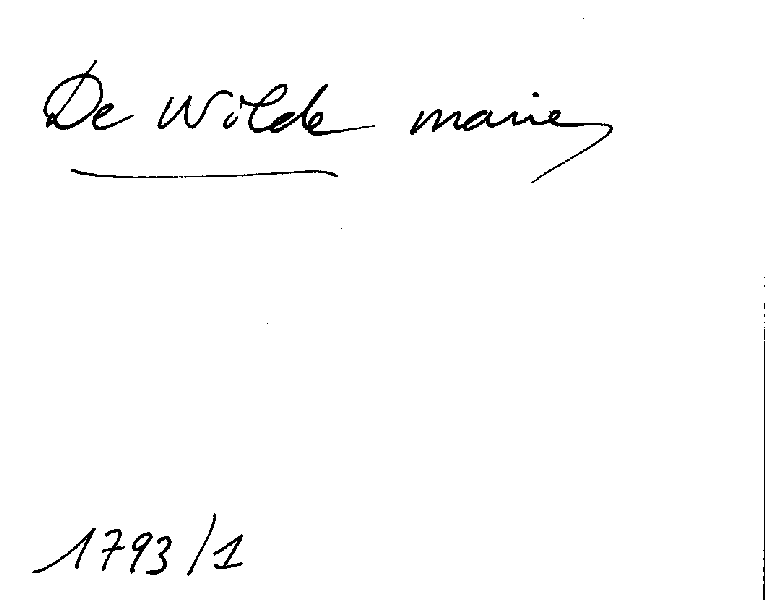 De Wilde marie
1793/1